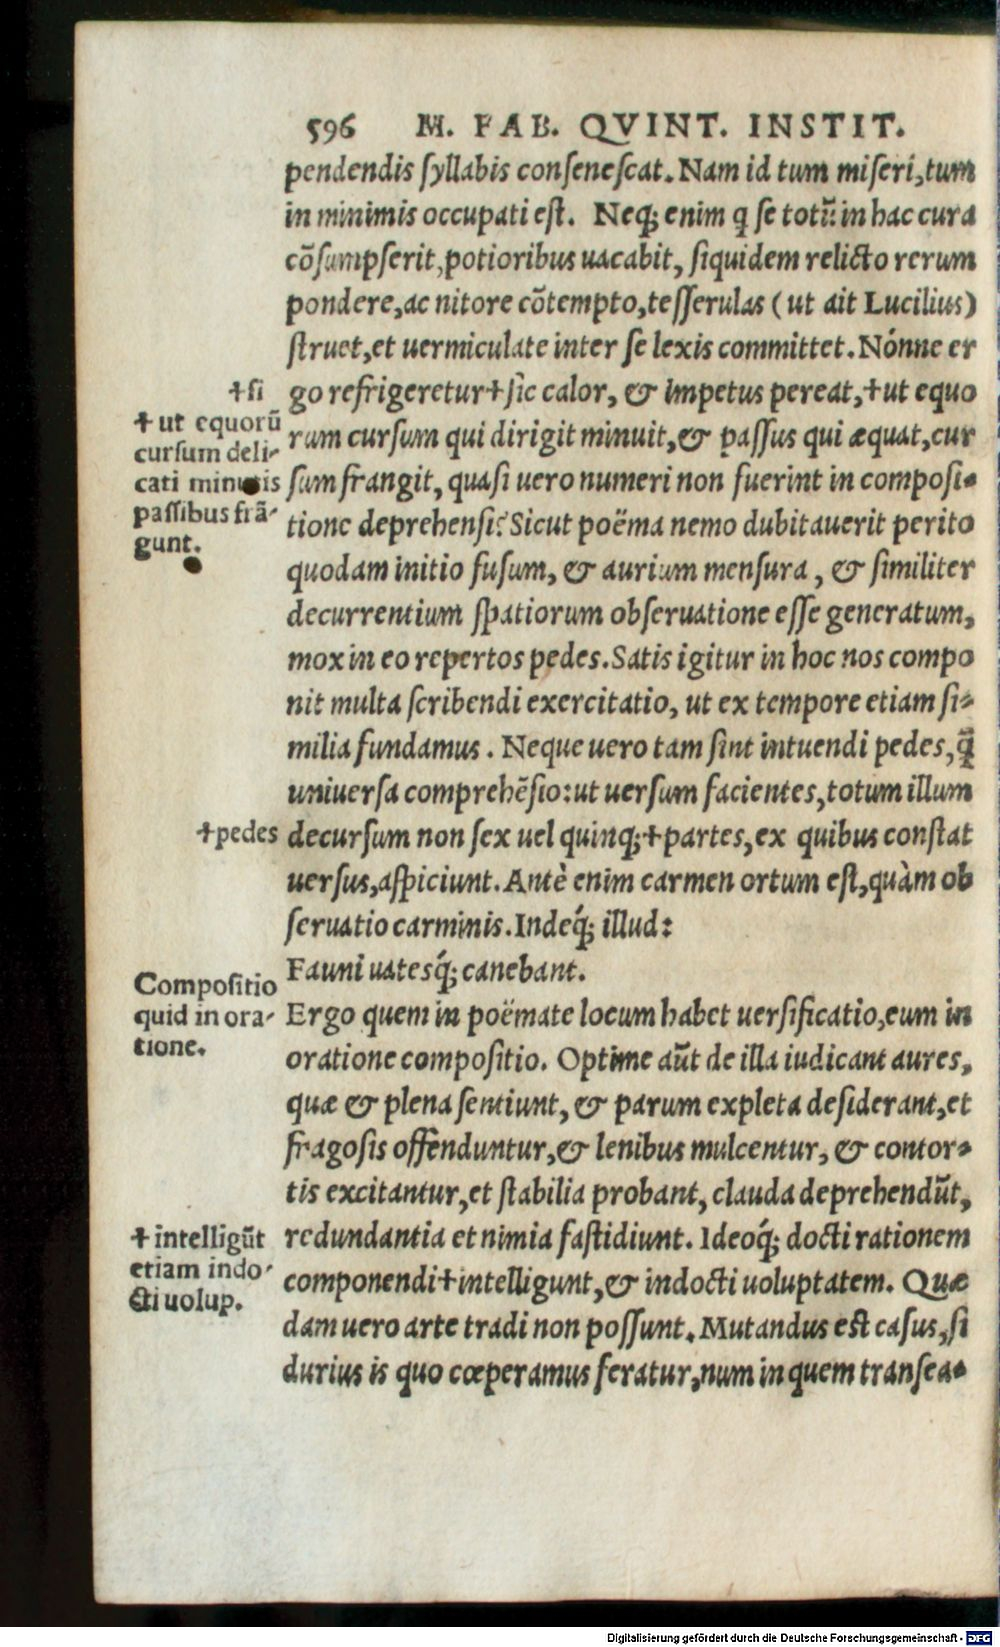 596 M. FAB. QVINT. INSTIT.
pendendis syllabis consenescat. Nam id tum miseri, tum
in minimis occupati est. Neq; enim q se totū in hac cura
cōsumpserit, potioribus uacabit, siquidem relicto rerum
pondere, ac nitore cōtempto, tesserulas (ut ait Lucilius)
struet, et uermiculate inter se lexis committet. Nónne er
go refrigeretur † sic calor, & impetus pereat, † ut equo
rum cursum qui dirigit minuit, & passus qui æquat, cur
sum frangit, quasi uero numeri non fuerint in composi-
tione deprehensi? Sicut poëma nemo dubitauerit perito
quodam initio fusum, & aurium mensura, & similiter
decurrentium spatiorum obseruatione esse generatum,
mox in eo repertos pedes. Satis igitur in hoc nos compo
nit multa scribendi exercitatio, ut ex tempore etiam si-
milia fundamus. Neque uero tam sint intuendi pedes, q̄
uniuersa comprehēsio: ut uersum facientes, totum illum
decursum non sex uel quinq; † partes, ex quibus constat
uersus, aspiciunt. Antè enim carmen ortum est, quàm ob
seruatio carminis. Indeq́; illud:
Fauni uatesq́; canebant.
Ergo quem in poëmate locum habet uersificatio, eum in
oratione compositio. Optime aūt de illa iudicant aures,
quæ & plena sentiunt, & parum expleta desiderant, et
fragosis offenduntur, & lenibus mulcentur, & contor-
tis excitantur, et stabilia probant, clauda deprehendūt,
redundantia et nimia fastidiunt. Ideoq́; docti rationem
componendi † intelligunt, & indocti uoluptatem. Quæ
dam uero arte tradi non possunt. Mutandus est casus, si
durius is quo cœperamus feratur, num in quem transea-
† si
† ut equorū
cursum deli-
cati minutis
passibus frā-
gunt.
† pedes
Compositio
quid in ora-
tione.
† intelligūt
etiam indo-
cti uolup.
Digitalisierung gefördert durch die Deutsche Forschungsgemeinschaft - DFG